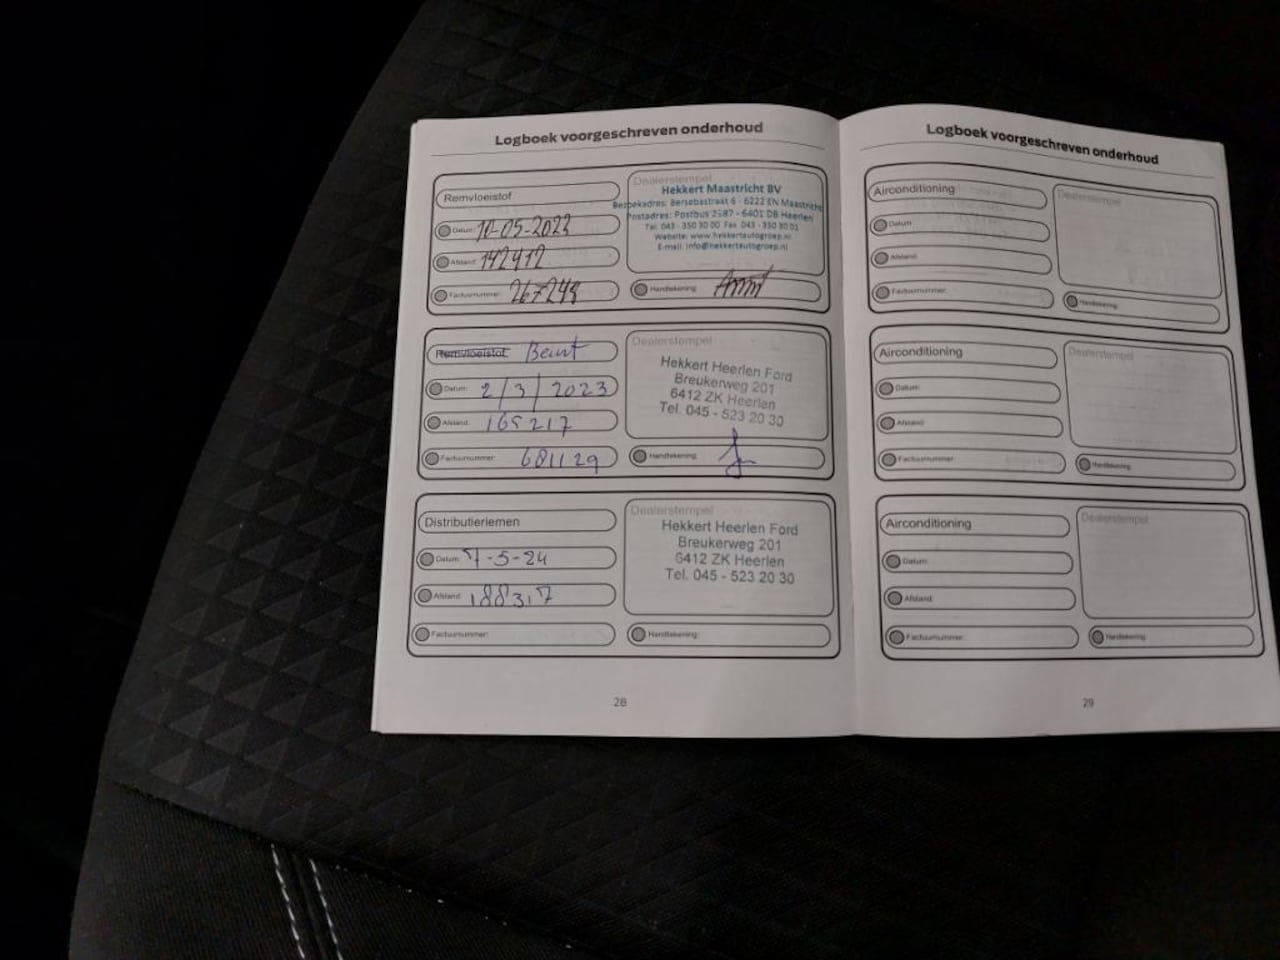 Logboek voorgeschreven onderhoud
Remvloeistof
Datum: 10-05-2022
Afstand: 142412
Factuurnummer: 267248
Dealerstempel
Hekkert Maastricht BV
Bezoekadres: Bersebastraat 6 - 6222 EN Maastricht
Postadres: Postbus 2587 - 6401 DB Heerlen
Tel: 043 - 350 30 00 Fax 043 - 350 30 01
Website: www.hekkertautogroep.nl
E-mail: info@hekkertautogroep.nl
Handtekening:
Remvloeistof Beurt
Datum: 2/3/2023
Afstand: 165217
Factuurnummer: 681129
Dealerstempel
Hekkert Heerlen Ford
Breukerweg 201
6412 ZK Heerlen
Tel. 045 - 523 20 30
Handtekening:
Distributieriemen
Datum: 7-5-24
Afstand: 188317
Factuurnummer:
Dealerstempel
Hekkert Heerlen Ford
Breukerweg 201
6412 ZK Heerlen
Tel. 045 - 523 20 30
Handtekening:
28
Logboek voorgeschreven onderhoud
Airconditioning
Datum:
Afstand:
Factuurnummer:
Dealerstempel
Handtekening:
Airconditioning
Datum:
Afstand:
Factuurnummer:
Dealerstempel
Handtekening:
Airconditioning
Datum:
Afstand:
Factuurnummer:
Dealerstempel
Handtekening:
29